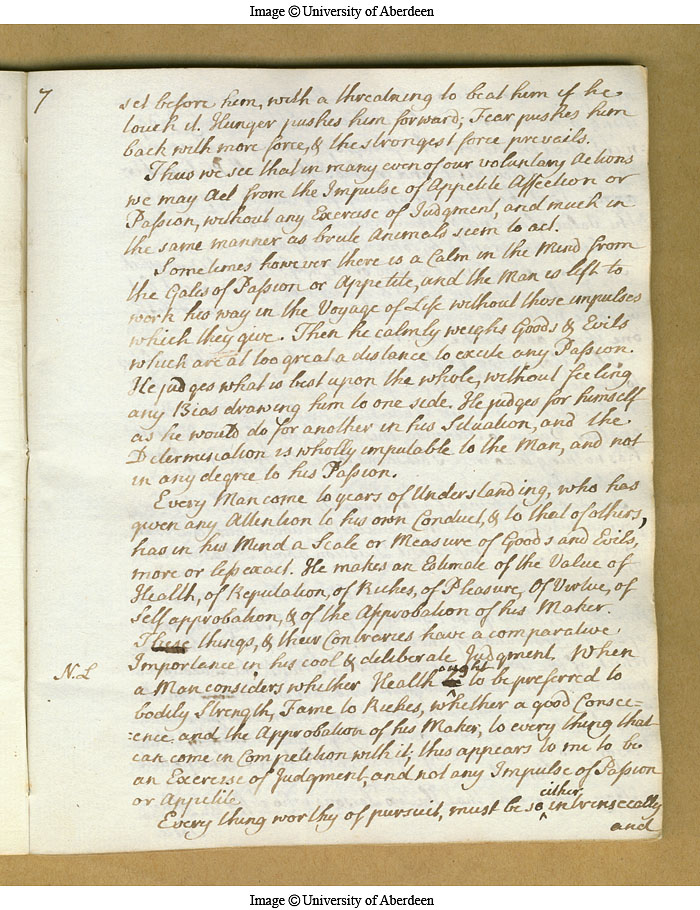 Image © University of Aberdeen
7
set before him, with a threatning to beat him if he
touch it. Hunger pushes him forward, Fear pushes him
back with more force, & the strongest force prevails.
Thus we see that in many even of our voluntary Actions
we may Act from the Impulse of Appetite Affection or
Passion, without any Exercise of Judgment, and much in
the same manner as brute Animals seem to act.
Sometimes however there is a Calm in the Mind from
the Gales of Passion or Appetite, and the Man is left to
work his way in the Voyage of Life without those impulses
which they give. Then he calmly weighs Goods & Evils
which are at too great a distance to excite any Passion.
He judges what is best upon the whole, without feeling
any Bias drawing him to one side. He judges for himself
as he would do for another in his Situation, and the
Determination is wholly imputable to the Man, and not
in any degree to his Passion.
Every Man come to years of Understanding, who has
given any Attention to his own Conduct, & to that of others,
has in his Mind a Scale or Measure of Goods and Evils,
more or less exact. He makes an Estimate of the Value of
Health, of Reputation, of Riches, of Pleasure, of Virtue, of
Self approbation, & of the Approbation of his Maker.
These things, & their Contraries have a comparative
Importance in his cool & deliberate Judgment. When
N.L
a Man considers whether Health ought to be preferred to
bodily Strength, Fame to Riches, whether a good Consci-
-ence and the Approbation of his Maker, to every thing that
can come in Competition with it; this appears to me to be
an Exercise of Judgment, and not any Impulse of Passion
or Appetite
Every thing worthy of pursuit, must be so either intrinsecally
and
Image © University of Aberdeen